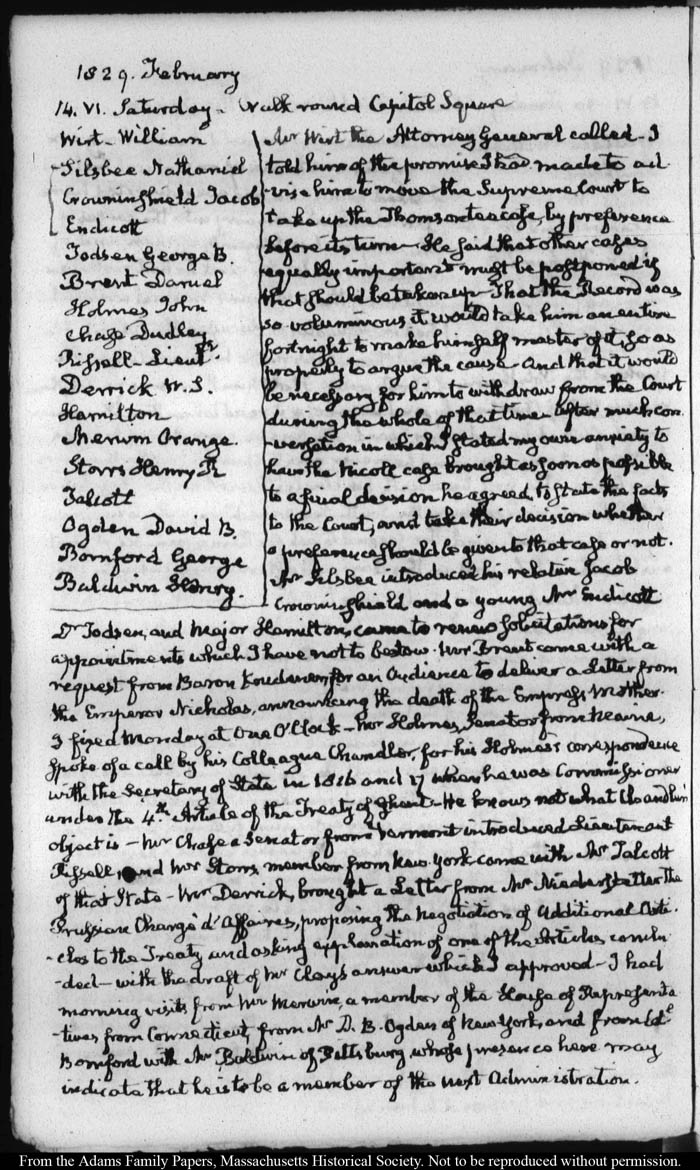 1829. February
14. VI. Saturday. Walk round Capitol Square
Wirt - William
Silsbee Nathaniel
Crowninshield Jacob
Endicott
Todsen George B.
Brent Daniel
Holmes John
Chase Dudley
Russell - Lieut.
Derrick W. S.
Hamilton
Merwin Orange
Storrs Henry R
Talcott
Ogden David B.
Bomford George
Baldwin Henry.
Mr Wirt the Attorney General called - I
told him of the promise I had made to ad-
-vise him to move the Supreme Court to
take up the Thomson tea case, by preference
before its turn - He said that other cases
equally important must be postponed if
that should be taken up - That the Record was
so voluminous it would take him an entire
fortnight to make himself master of it, so as
properly to argue the cause - And that it would
be necessary for him to withdraw from the Court
during the whole of that time - After much con-
-versation in which I stated my own anxiety to
have the Nicoll case brought as soon as possible
to a final decision he agreed, to state the facts
to the Court, and take their decision whether
a preference should be given to that case or not.
Mr Silsbee introduced his relative Jacob
Crowninshield and a young Mr Endicott
Dr Todsen, and Major Hamilton, came to renew solicitations for
appointments which I have not to bestow. Mr Brent came with a
request from Baron Krudener, for an Audience to deliver a Letter from
the Emperor Nicholas, announcing the death of the Empress Mother.
I fixed Monday at One O'Clock - Mr Holmes, Senator from Maine,
spoke of a call by his Colleague Chandler, for his Holmes's correspondence
with the Secretary of State in 1816 and 17 when he was Commissioner
under the 4th Article of the Treaty of Ghent - He knows not what Chandler's
object is - Mr Chase a Senator from Vermont introduced Lieutenant
Russell, and Mr Storrs, member from New York came with Mr Talcott
of that State - Mr Derrick, brought a Letter from Mr Niederstetter the
Prussian Chargé d'Affaires, proposing the negotiation of additional Arti-
-cles to the Treaty and asking explanation of one of the Articles conclu-
-ded - with the draft of Mr Clay's answer which I approved - I had
morning visits from Mr Merwin, a member of the House of Representa-
-tives from Connecticut, from Mr D. B. Ogden of New York, and from Col.
Bomford with Mr Baldwin of Pittsburg whose presence here may
indicate that he is to be a member of the next Administration.
From the Adams Family Papers, Massachusetts Historical Society. Not to be reproduced without permission.